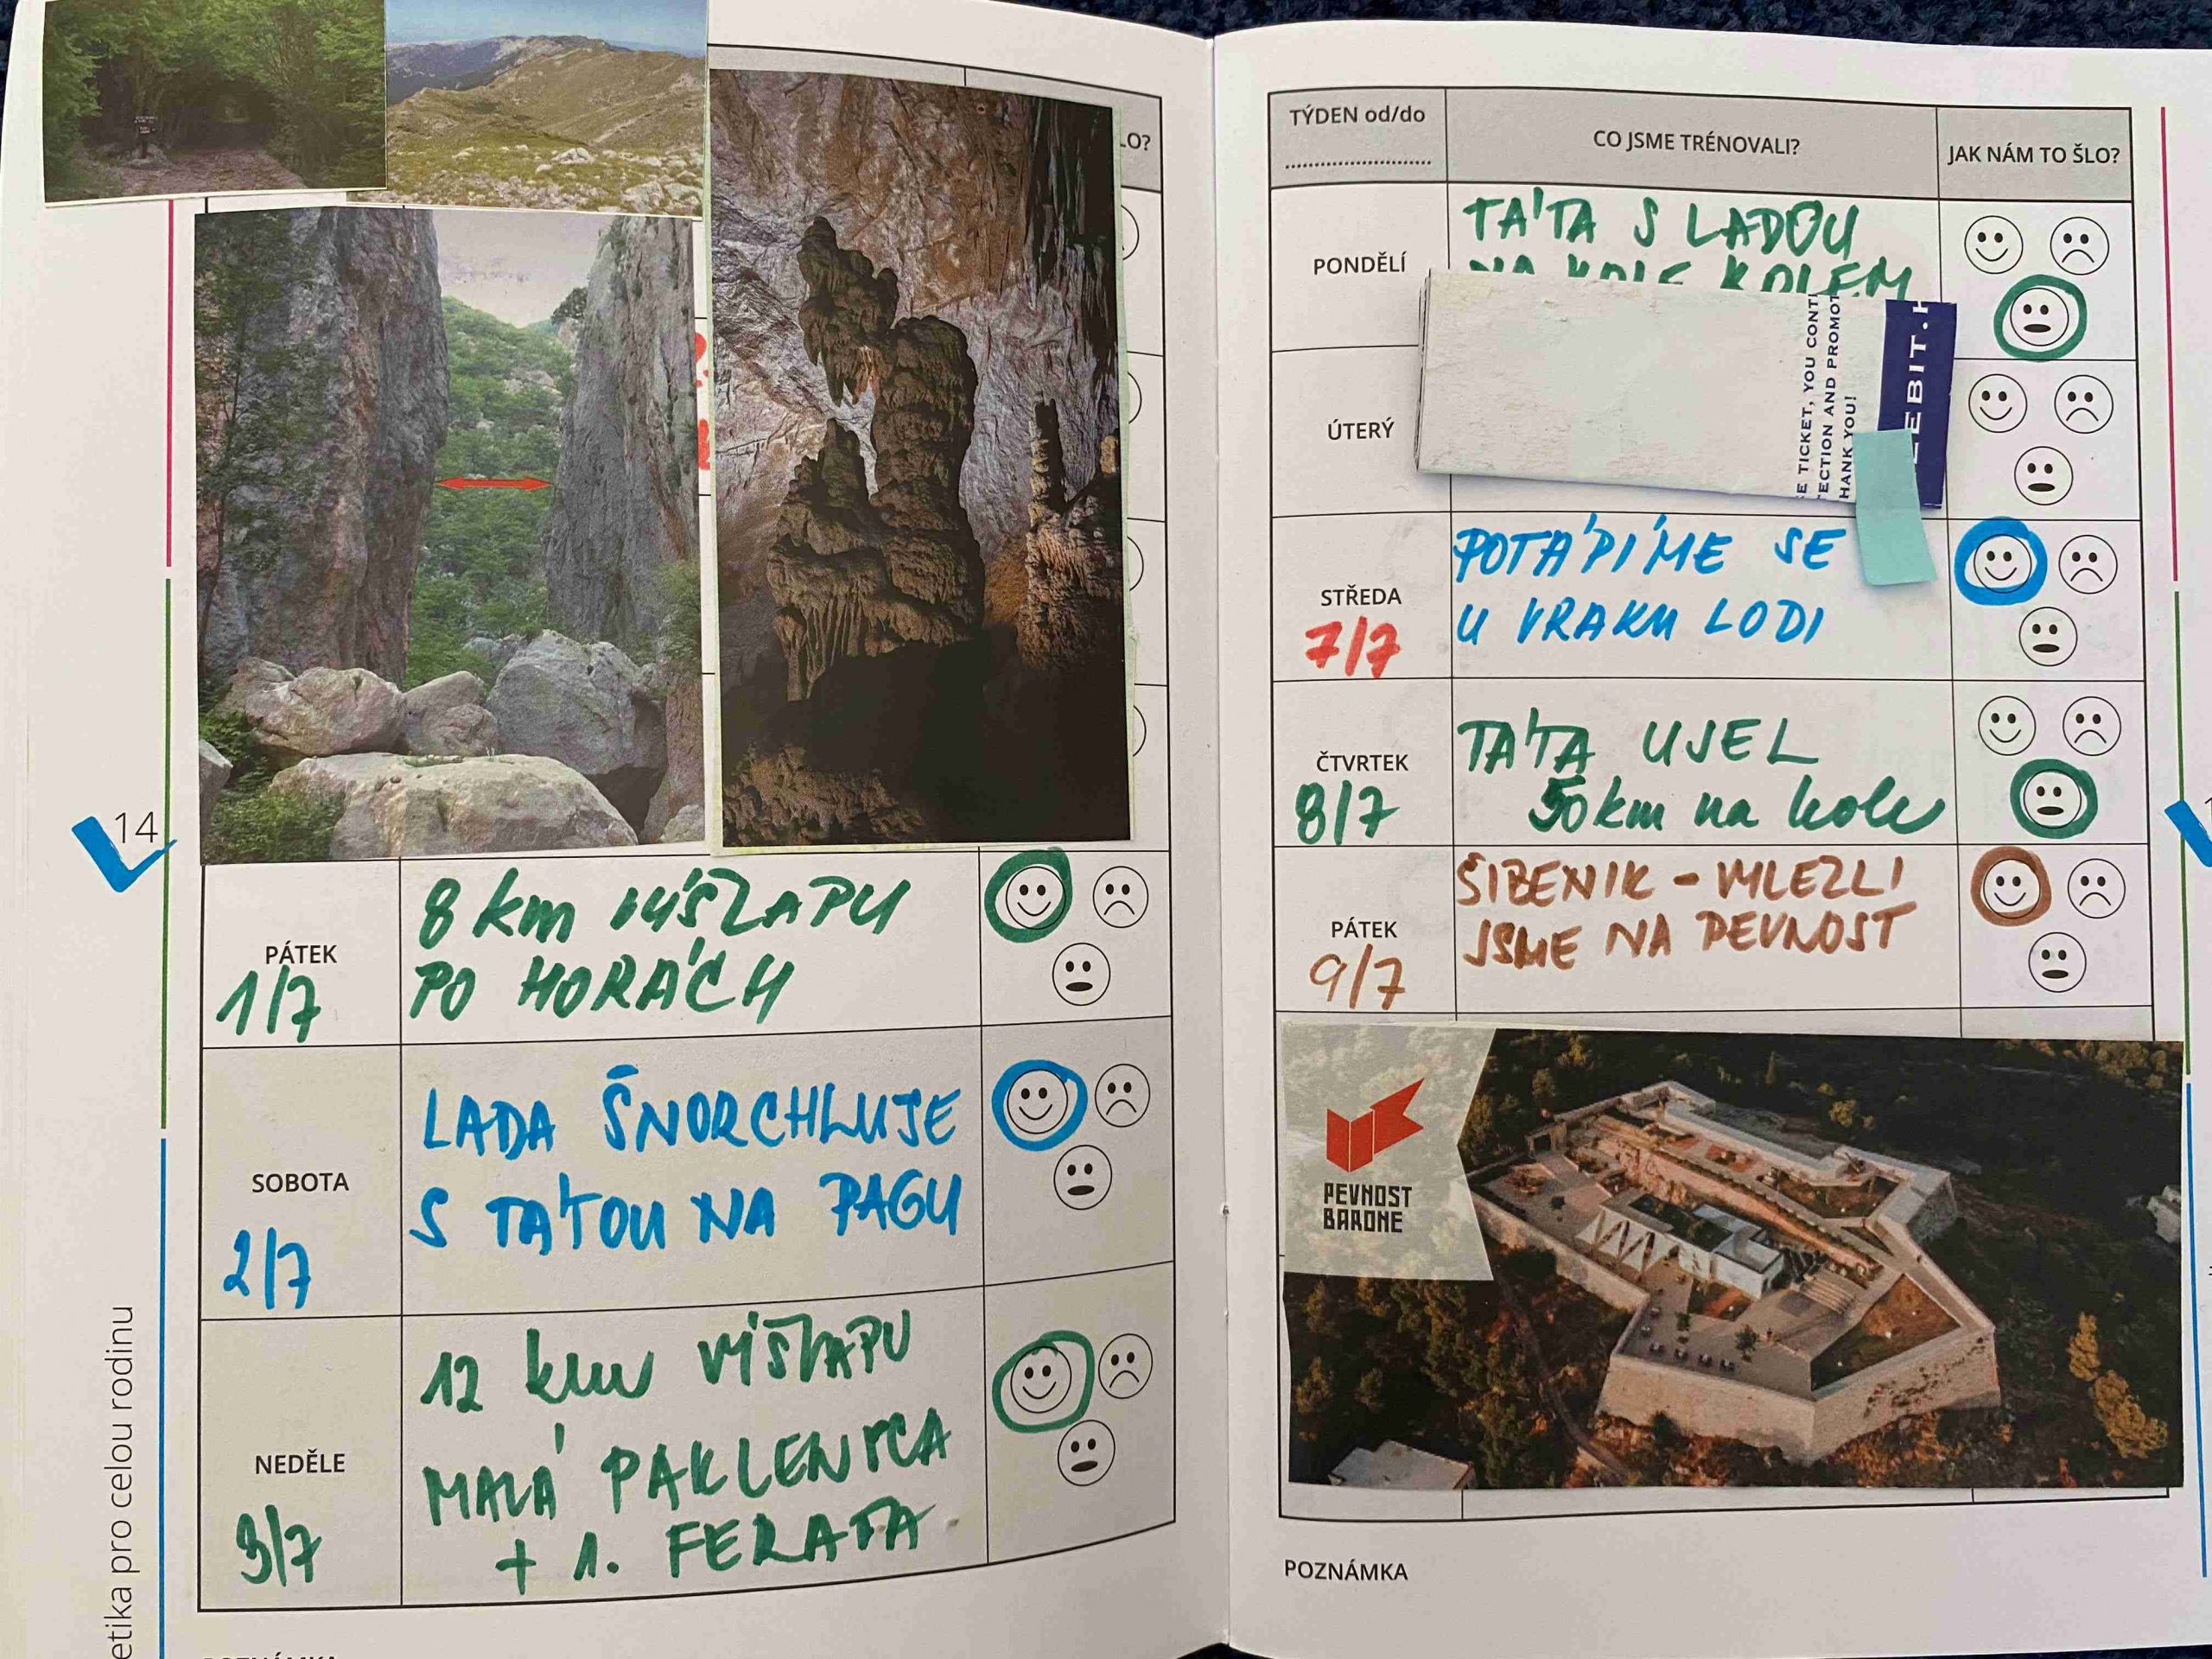 LO?
14
PÁTEK
1/7
8 km VÝŠLAPU
PO HORÁCH
SOBOTA
2/7
LADA ŠNORCHLUJE
S TÁTOU NA PAGU
NEDĚLE
3/7
12 km VÝŠLAPU
MALÁ PAKLENICA
+ 1. FERATA
etika pro celou rodinu
TÝDEN od/do
CO JSME TRÉNOVALI?
JAK NÁM TO ŠLO?
PONDĚLÍ
TÁTA S LADOU
NA KOLE KOLEM
ÚTERÝ
E TICKET, YOU CONT
ECTION AND PROMOT
HANK YOU!
EBIT.H
STŘEDA
7/7
POTÁPÍME SE
U VRAKU LODI
ČTVRTEK
8/7
TÁTA UJEL
50 km na kole
PÁTEK
9/7
ŠIBENIK - VYLEZLI
JSME NA PEVNOST
PEVNOST
BARONE
POZNÁMKA